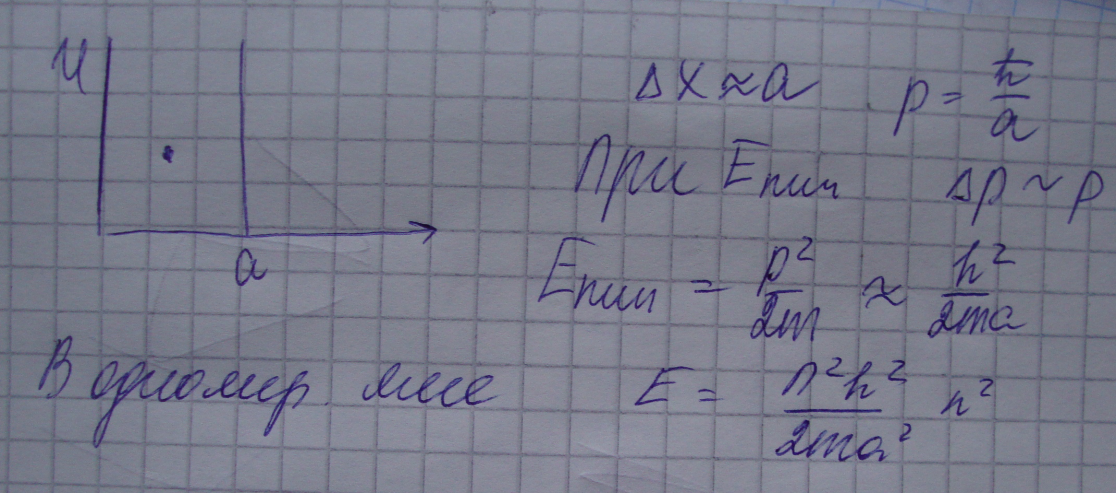 U
a
Δx ≈ a p = ħ/a
При Eмин Δp ~ p
Eмин = p²/2m ≈ ħ²/2ma
В одномер. яме E = π²ħ²/2ma² n²